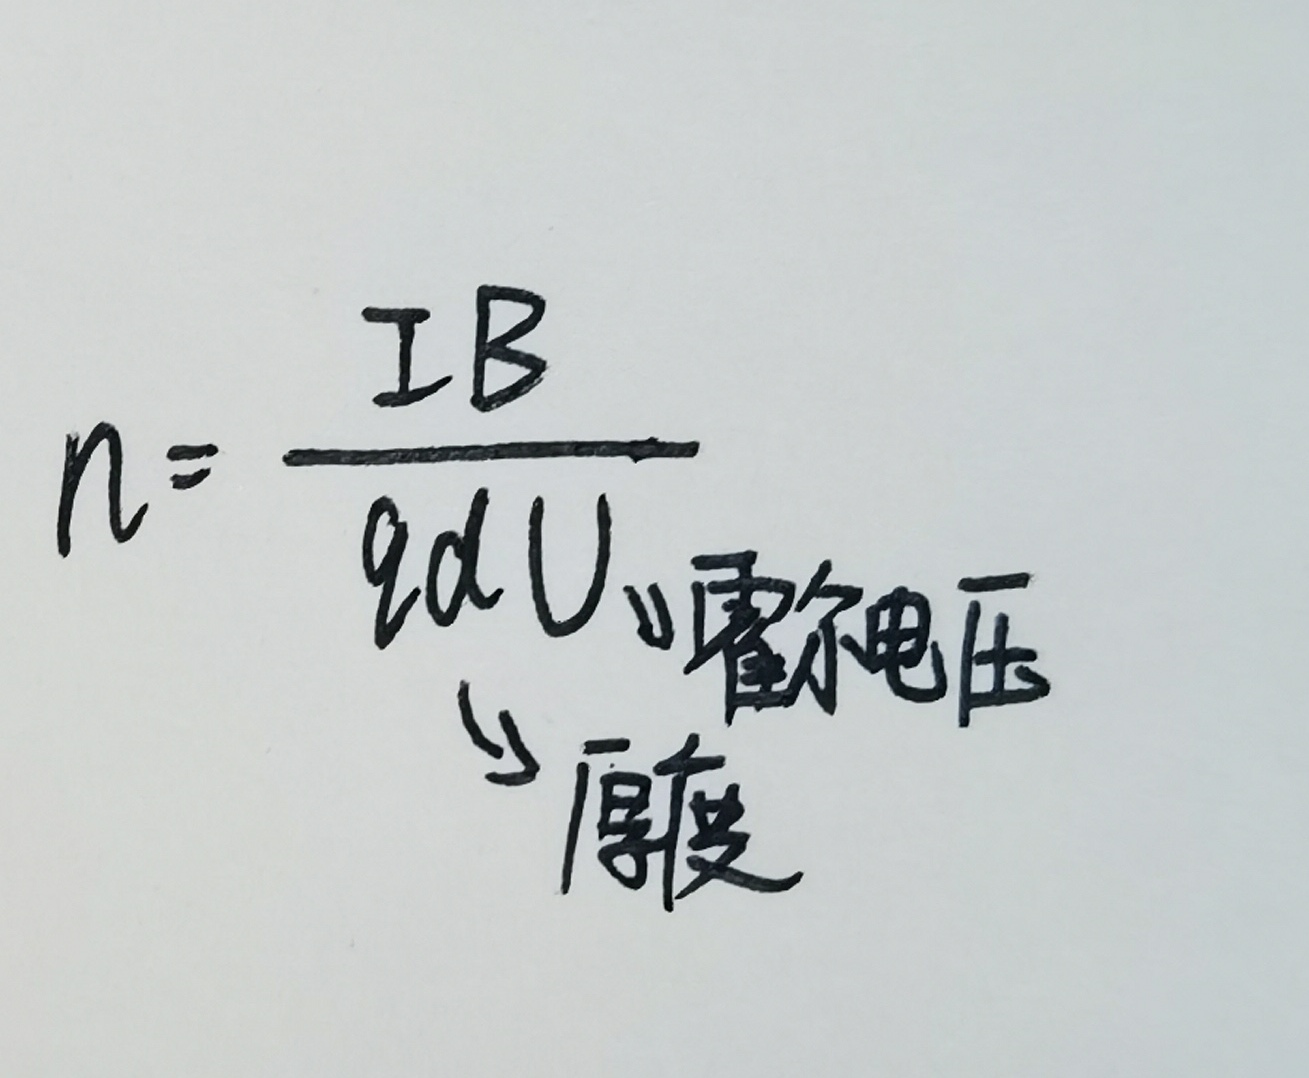 n = \frac{IB}{qdU}
↘ 霍尔电压
↘ 厚度